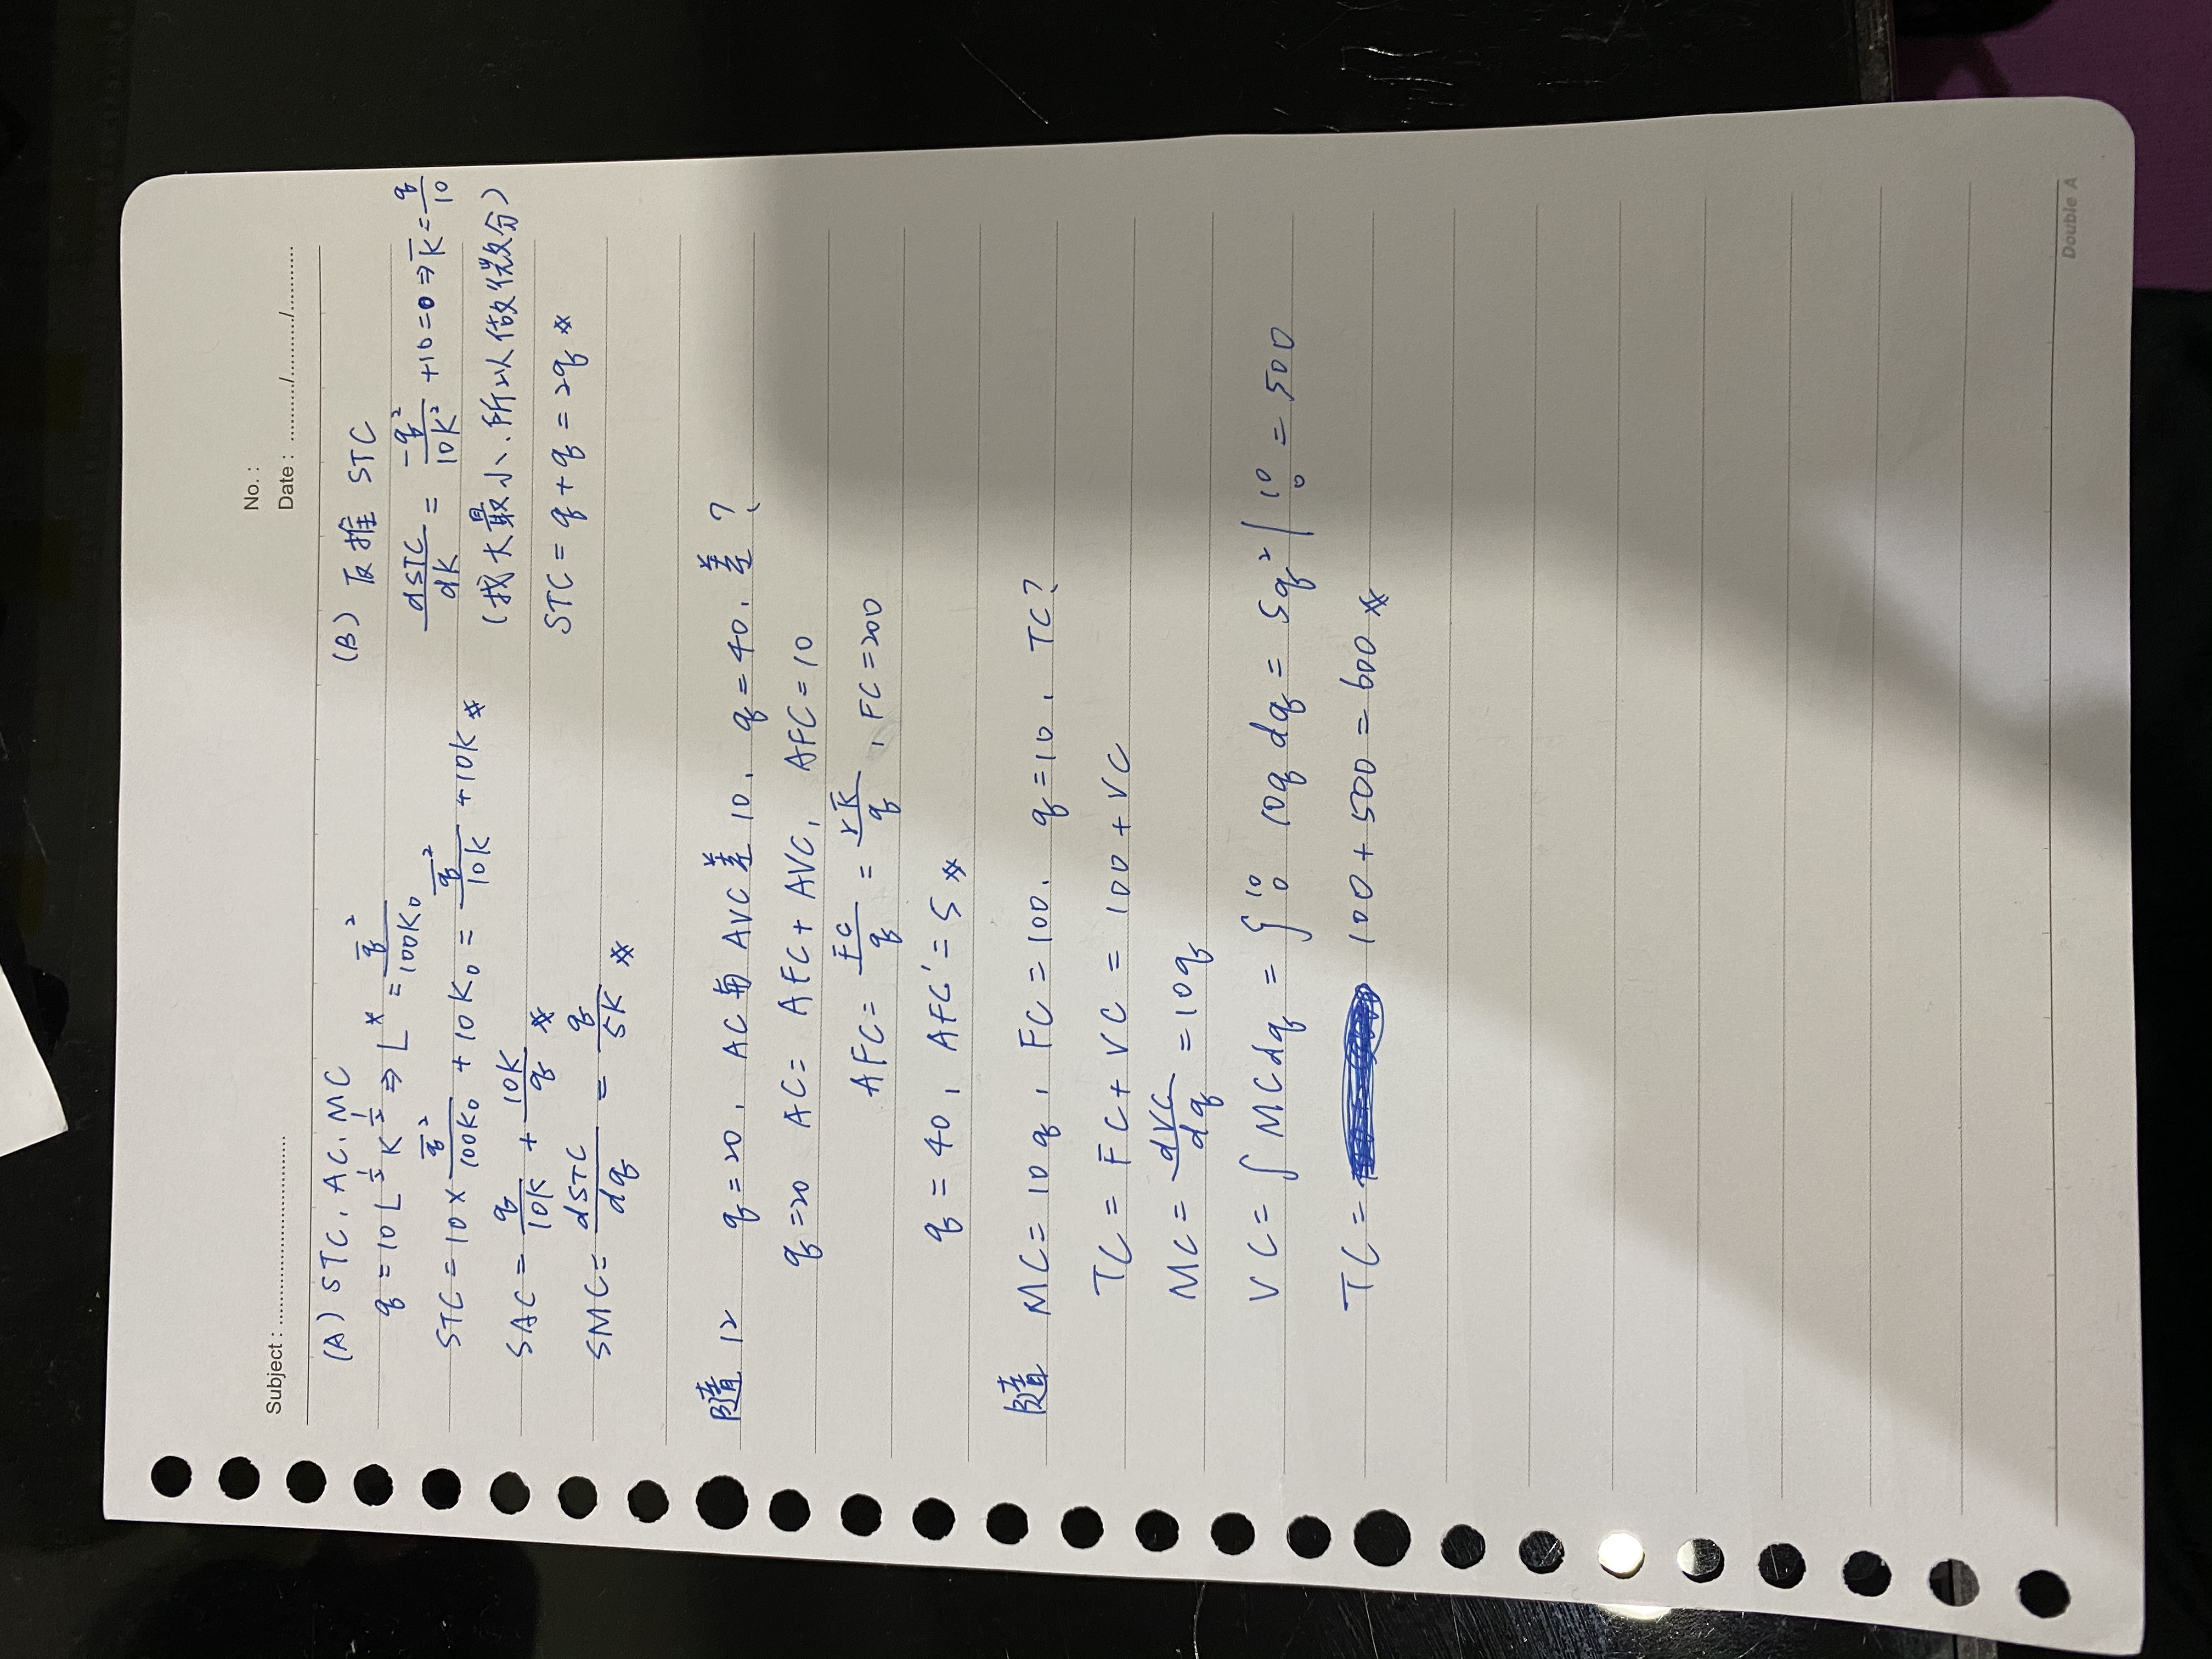 No. :
Subject : ...............................
Date : ........../........../...........
(A) STC, AC, MC
q = 10 L^½ K^½ ⇒ L* = q̄²/100K₀
STC = 10 × q̄²/100K₀ + 10K₀ = q̄²/10K + 10K ※
SAC = q/10K + 10K/q ※
SMC = dSTC/dq = q/5K ※
(B) 反推 STC
dSTC/dK = -q²/10K² + 10 = 0 ⇒ K̄ = q/10
(找大最小、所以做微分)
STC = q + q = 2q ※
隨 12 q = 20, AC 與 AVC 差 10, q = 40, 差?
q = 20 AC = AFC + AVC, AFC = 10
AFC = FC/q = rK̄/q, FC = 200
q = 40, AFC' = 5 ※
隨 MC = 10q, FC = 100, q = 10, TC?
TC = FC + VC = 100 + VC
MC = dVC/dq = 10q
VC = ∫ MC dq = ∫₀¹⁰ 10q dq = 5q² |₀¹⁰ = 500
TC = 100 + 500 = 600 ※
Double A